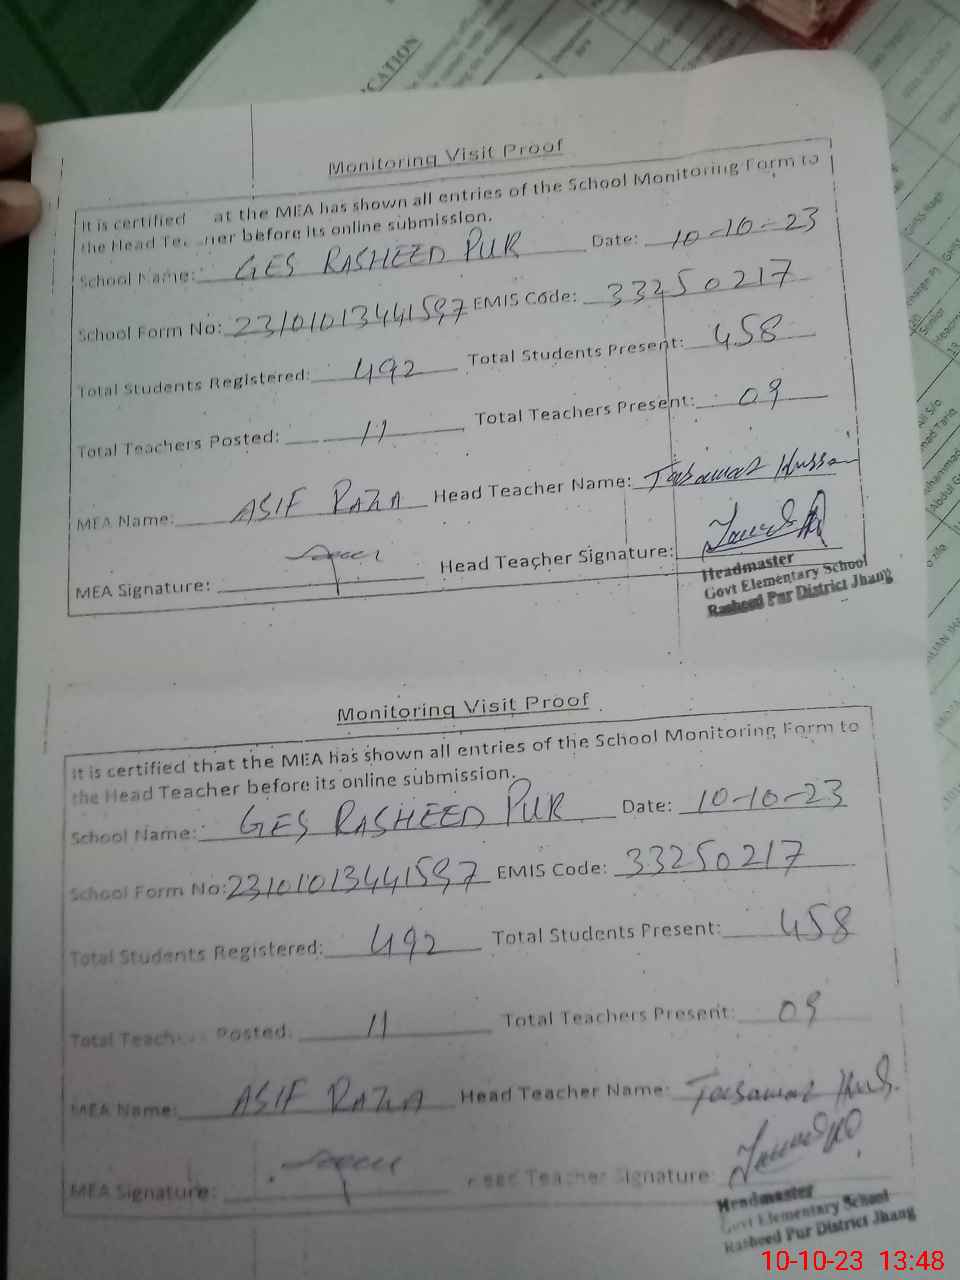 CATION
Monitoring Visit Proof
It is certified at the MEA has shown all entries of the School Monitoring Form to
the Head Te ner before its online submission.
School Name: GES RASHEED PUR Date: 10-10-23
School Form No: 23101013441597 EMIS Code: 33250217
Total Students Registered: 492 Total Students Present: 458
Total Teachers Posted: 11 Total Teachers Present: 09
MEA Name: ASIF RAZA Head Teacher Name: Tasawar Hussan
MEA Signature: Head Teacher Signature:
Headmaster
Govt Elementary School
Rasheed Pur District Jhang
Monitoring Visit Proof
It is certified that the MEA has shown all entries of the School Monitoring Form to
the Head Teacher before its online submission.
School Name: GES RASHEED PUR Date: 10-10-23
School Form No: 23101013441597 EMIS Code: 33250217
Total Students Registered: 492 Total Students Present: 458
Total Teachers Posted: 11 Total Teachers Present: 09
MEA Name: ASIF RAZA Head Teacher Name: Tasawar
MEA Signature: Head Teacher Signature:
Headmaster
Govt Elementary School
Rasheed Pur District Jhang
10-10-23 13:48